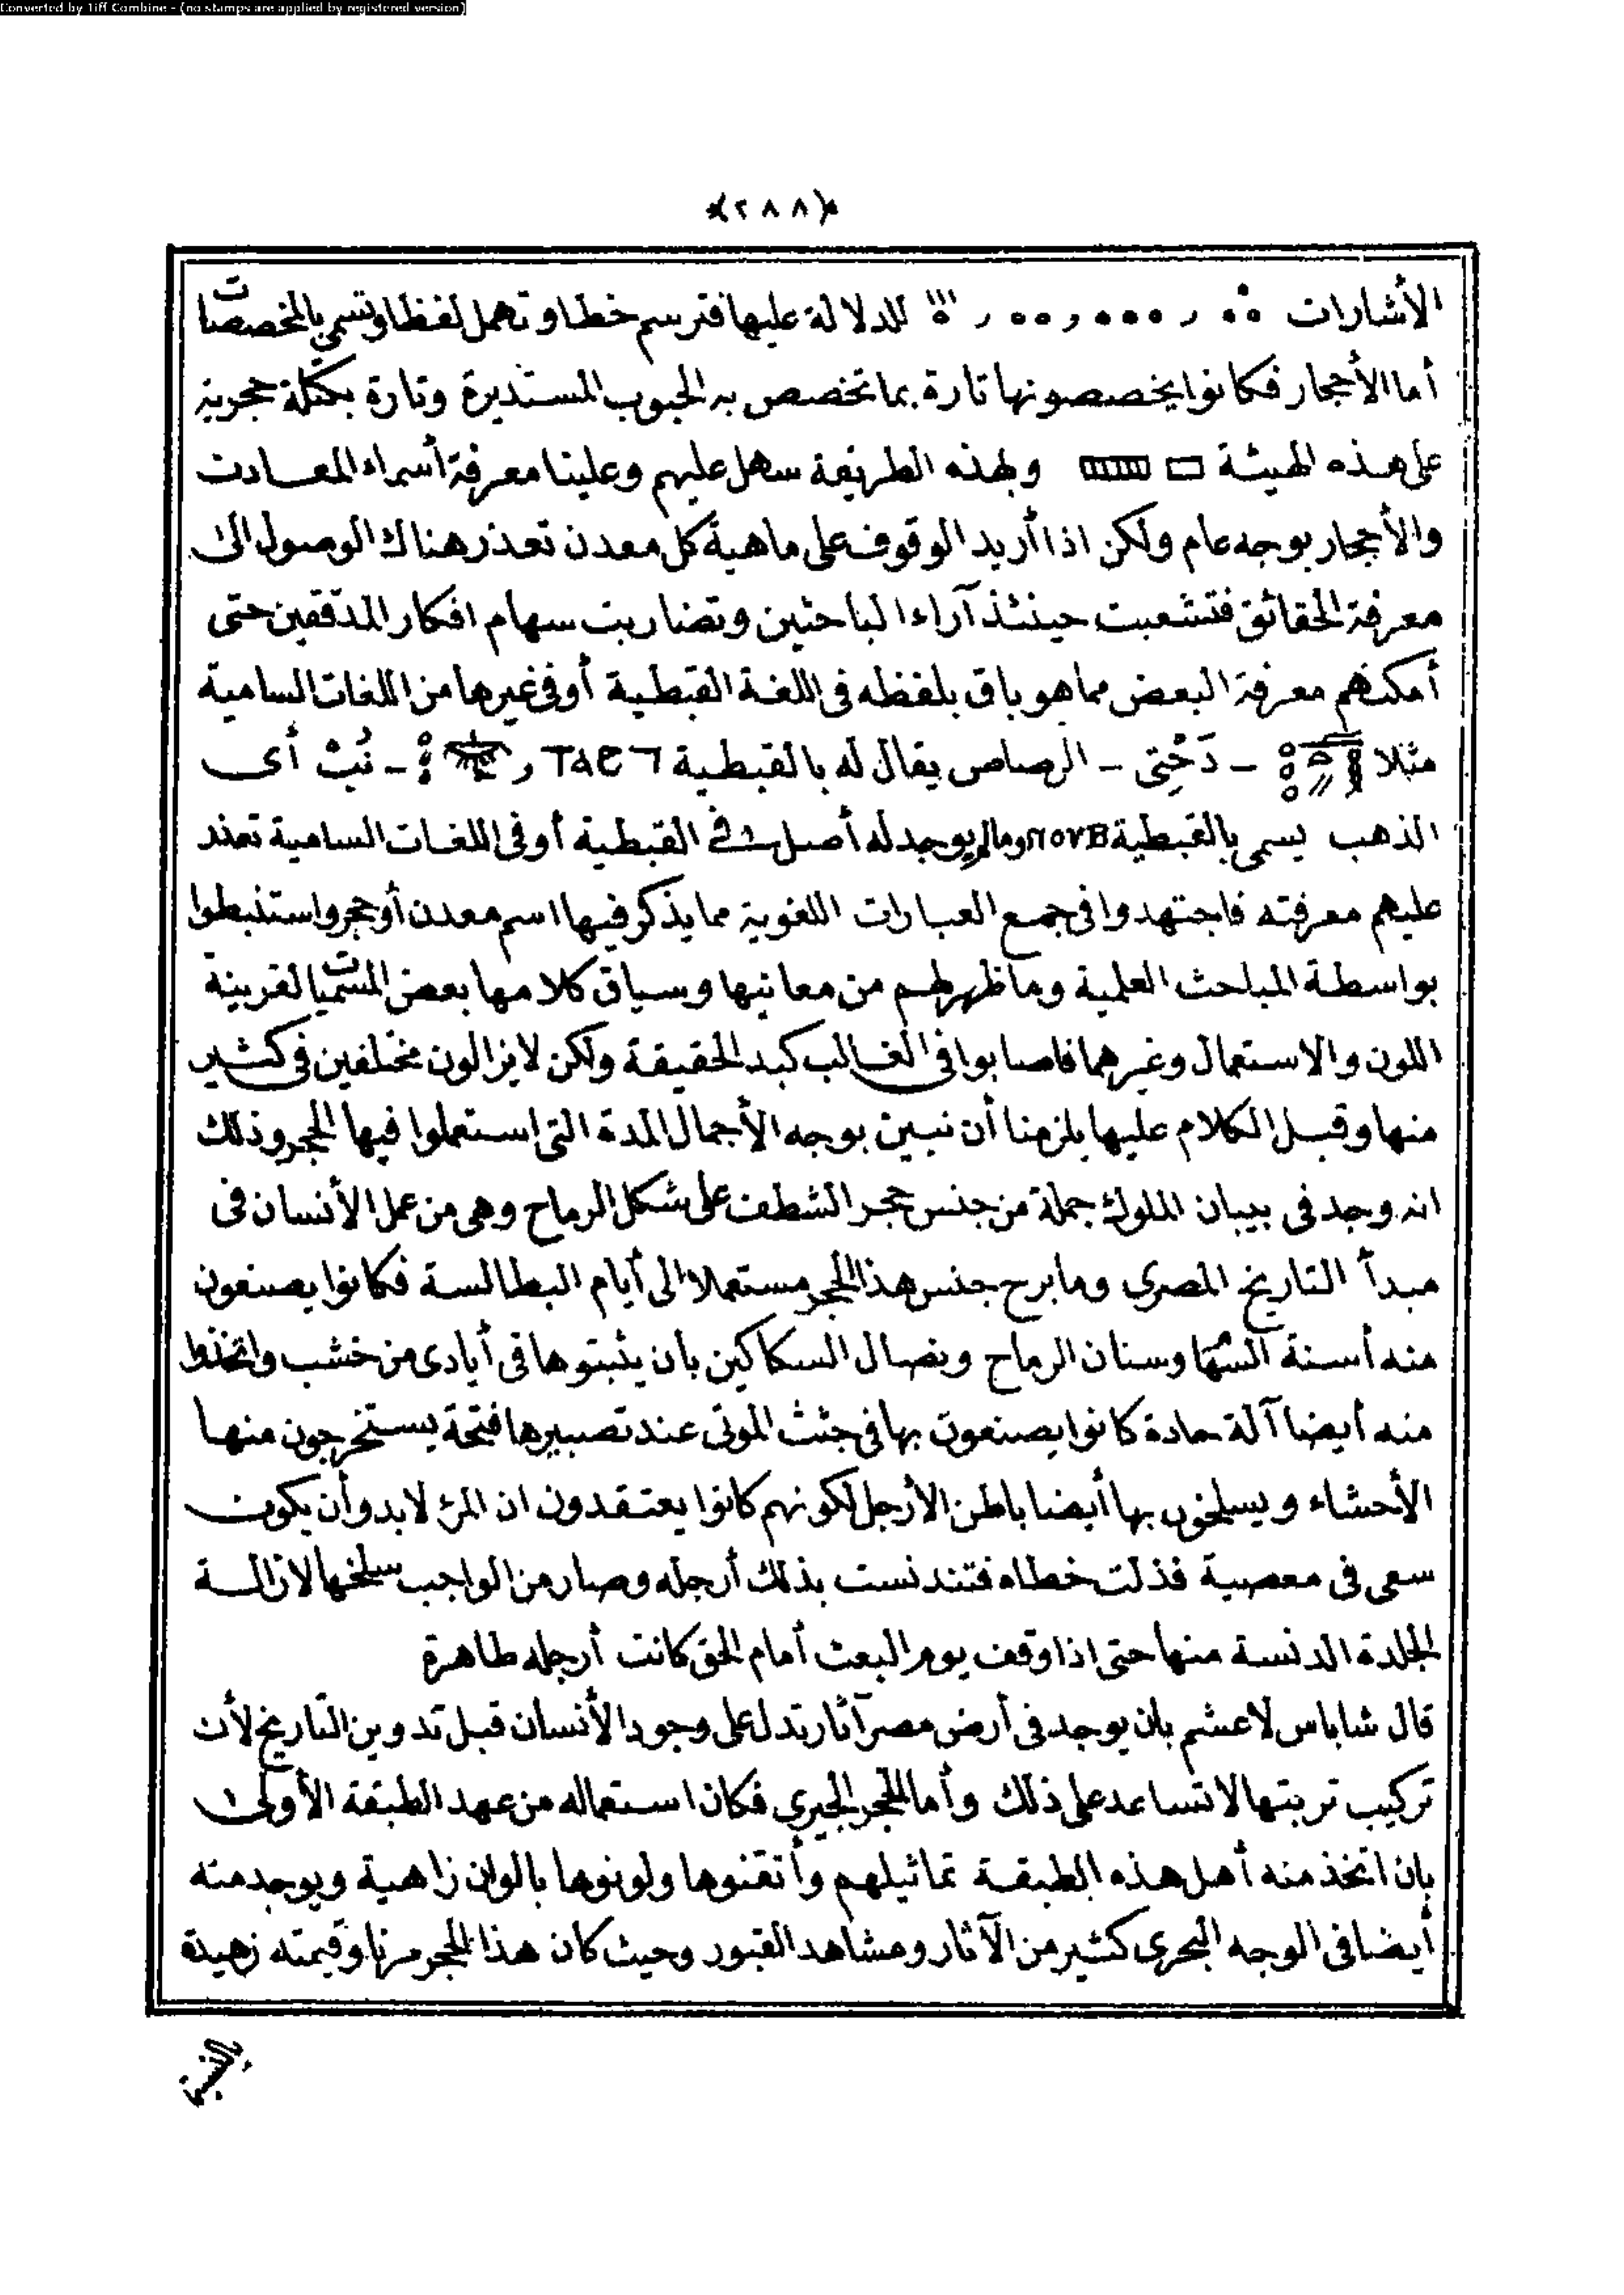 Converted by Tiff Combine - (no stamps are applied by registered version)
﴿٢٨٨﴾
الأشارات للدلالة عليها فترسم خطا وتهمل لفظا وتسمى بالمخصصات
أما الأحجار فكانوا يخصصونها تارة بما تخصص به الحبوب المستديرة وتارة بكتلة حجرية
على هذه الهيئة وبهذه الطريقة سهل عليهم وعلينا معرفة أسماء المعادن
والأحجار بوجه عام ولكن اذا أريد الوقوف على ماهية كل معدن تعذر هناك الوصول الى
معرفة الحقائق فتشعبت حينئذ آراء الباحثين وتضاربت سهام افكار المدققين حتى
أمكنهم معرفة البعض مما هو باق بلفظه فى اللغة القبطية أو فى غيرها من اللغات السامية
مثلا - دَحْتِى - الرصاص يقال له بالقبطية ⲧⲁϩⲧ و - نُبْ أى
الذهب يسمى بالقبطية ⲛⲟⲩⲃ ومالم يوجد له أصل فى القبطية أو فى اللغات السامية تعذر
عليهم معرفته فاجتهدوا فى جمع العبارات اللغوية مما يذكر فيها اسم معدن أو حجر واستنبطوا
بواسطة المباحث العلمية وما ظهر لهم من معانيها وسياق كلامها بعض المسميات لقرينة
اللون والاستعمال وغيرهما فاصابوا فى الغالب كبد الحقيقة ولكن لا يزالون مختلفين فى كثير
منها وقبل الكلام عليها يلزمنا أن نبين بوجه الأجمال المدة التى استعملوا فيها الحجر وذلك
انه وجد فى بيبان الملوك جملة من جنس حجر الشطف على شكل الرماح وهى من عمل الأنسان فى
مبدأ التاريخ المصرى وما برح جنس هذا الحجر مستعملا الى أيام البطالسة فكانوا يصنعون
منه أسنة السهام وسنان الرماح ونصال السكاكين بان يثبتوها فى أيادى من خشب واتخذوا
منه أيضا آلة حادة كانوا يصنعون بها فى جثث الموتى عند تصبيرها فتحة يستخرجون منها
الأحشاء ويسلخون بها أيضا باطن الأرجل لكونهم كانوا يعتقدون ان المرٔ لابد وأن يكون
سعى فى معصية فذلت خطاه فتندنست بذلك أرجله وصار من الواجب سلخها لازالة
الجلدة الدنسة منها حتى اذا وقف يوم البعث أمام الحق كانت أرجله طاهرة
قال شاباس لا عشم بان يوجد فى أرض مصر آثار تدل على وجود الأنسان قبل تدوين التاريخ لأن
تركيب تربتها لا تساعد على ذلك وأما الحجر الجيرى فكان استعماله من عهد الطبقة الأولى
بان اتخذ منه أهل هذه الطبقة تماثيلهم وأتقنوها ولونوها بالوان زاهية ويوجد منه
أيضا فى الوجه البحرى كثير من الآثار ومشاهد القبور وحيث كان هذا الحجر مرنا وقيمته زهيدة